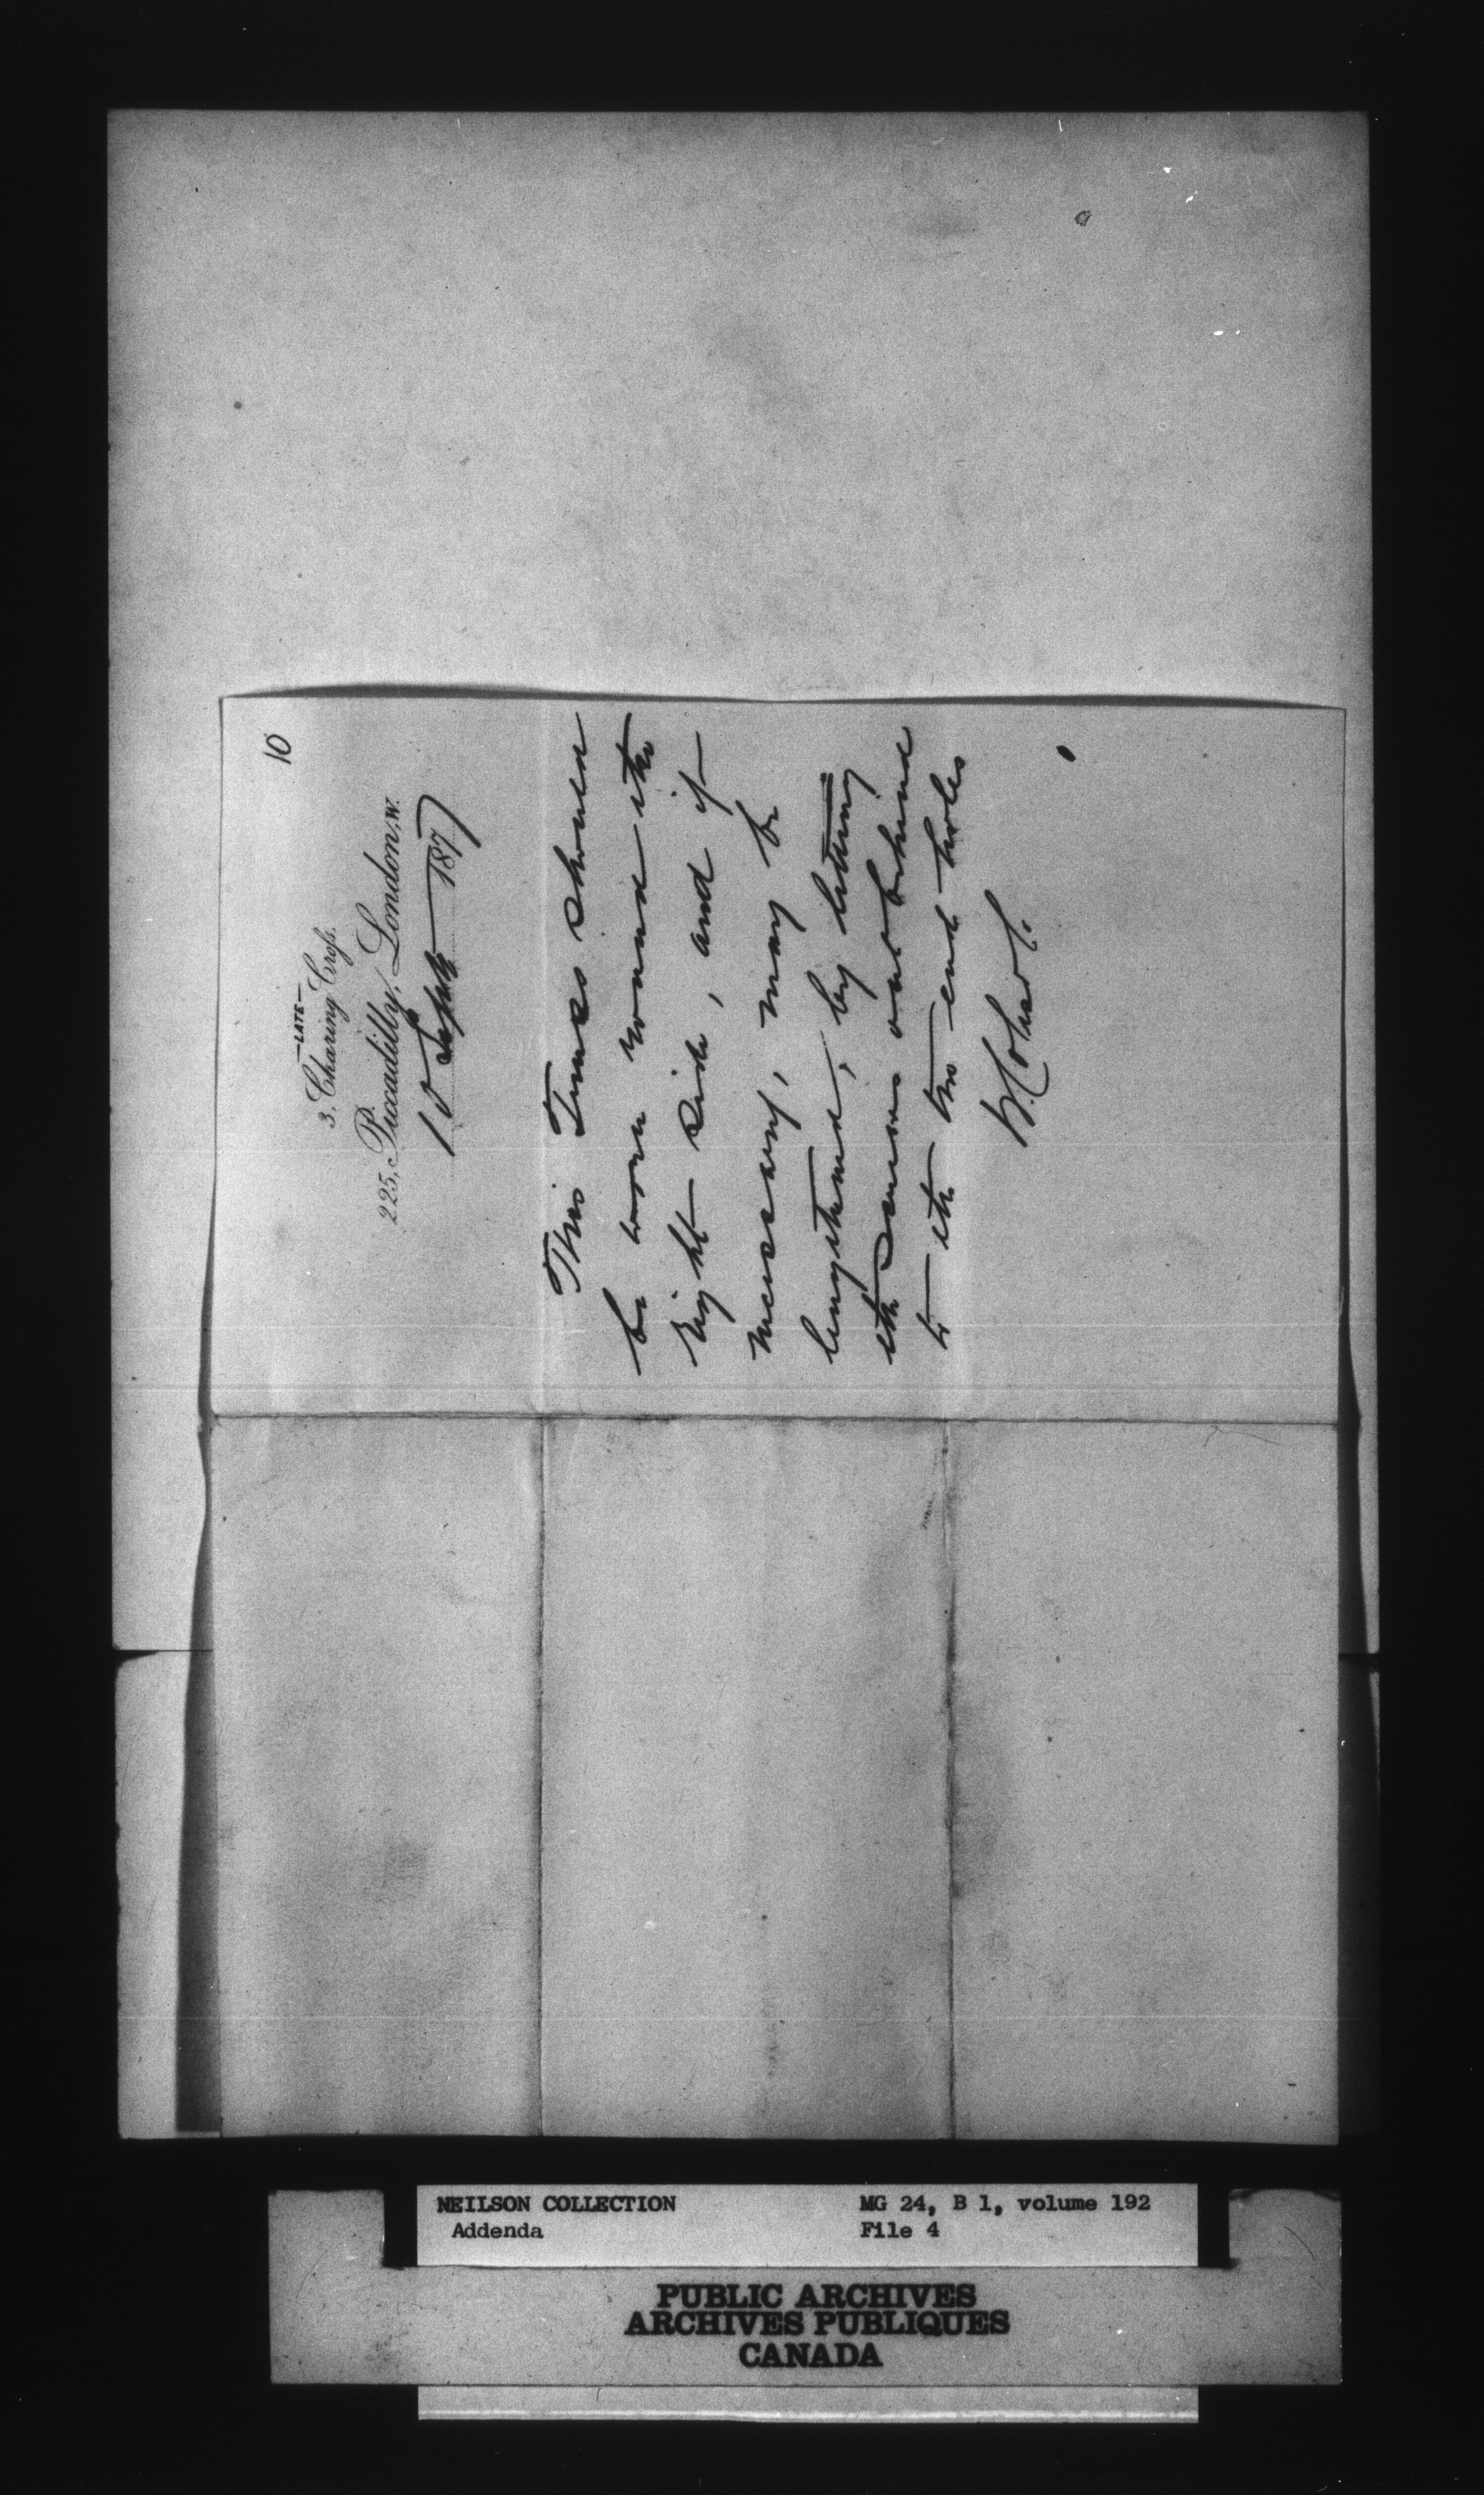 10
—LATE—
3, Charing Cross.
225, Piccadilly, London, W.
10 Septr 187
This Truss should
be worn round the
right side, and if
necessary, may be
lengthened, by letting
the out behind
to the two end holes
NEILSON COLLECTION
Addenda
MG 24, B 1, volume 192
File 4
PUBLIC ARCHIVES
ARCHIVES PUBLIQUES
CANADA